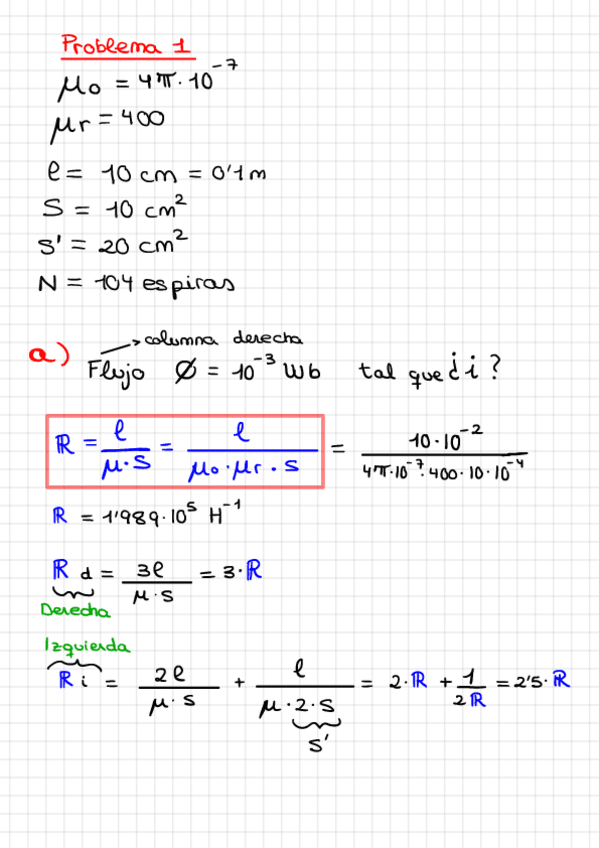 Problema 1
μo = 4π·10^-7
μr = 400
l = 10 cm = 0'1 m
S = 10 cm²
S' = 20 cm²
N = 104 espiras
→ columna derecha
a) Flujo Ø = 10^-3 Wb tal que ¿i?
ℝ = l/(μ·S) = l/(μo·μr·S) = 10·10^-2/(4π·10^-7·400·10·10^-4)
ℝ = 1'989·10^5 H^-1
ℝd = 3l/(μ·S) = 3·ℝ
Derecha
Izquierda
ℝi = 2l/(μ·S) + l/(μ·2·S) = 2·ℝ + 1/(2ℝ) = 2'5·ℝ
S'